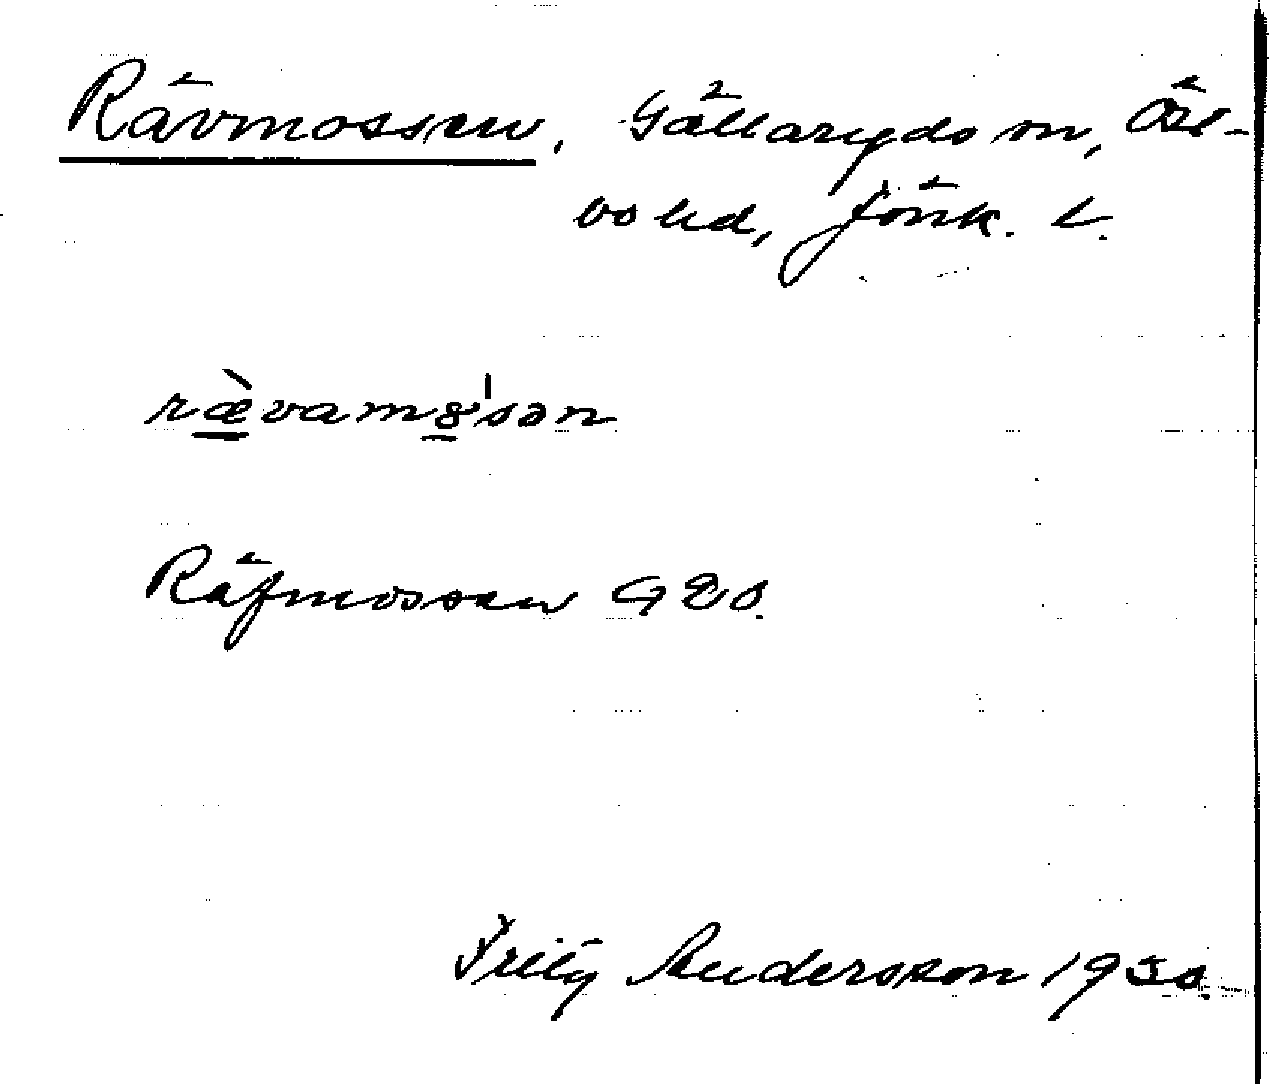 Rävmossen, Gällaryds sn, Öst-
bo hd, Jönk. L.
rævamo̱'sən
Räfmossen GEO.
Fritz Andersson 1930